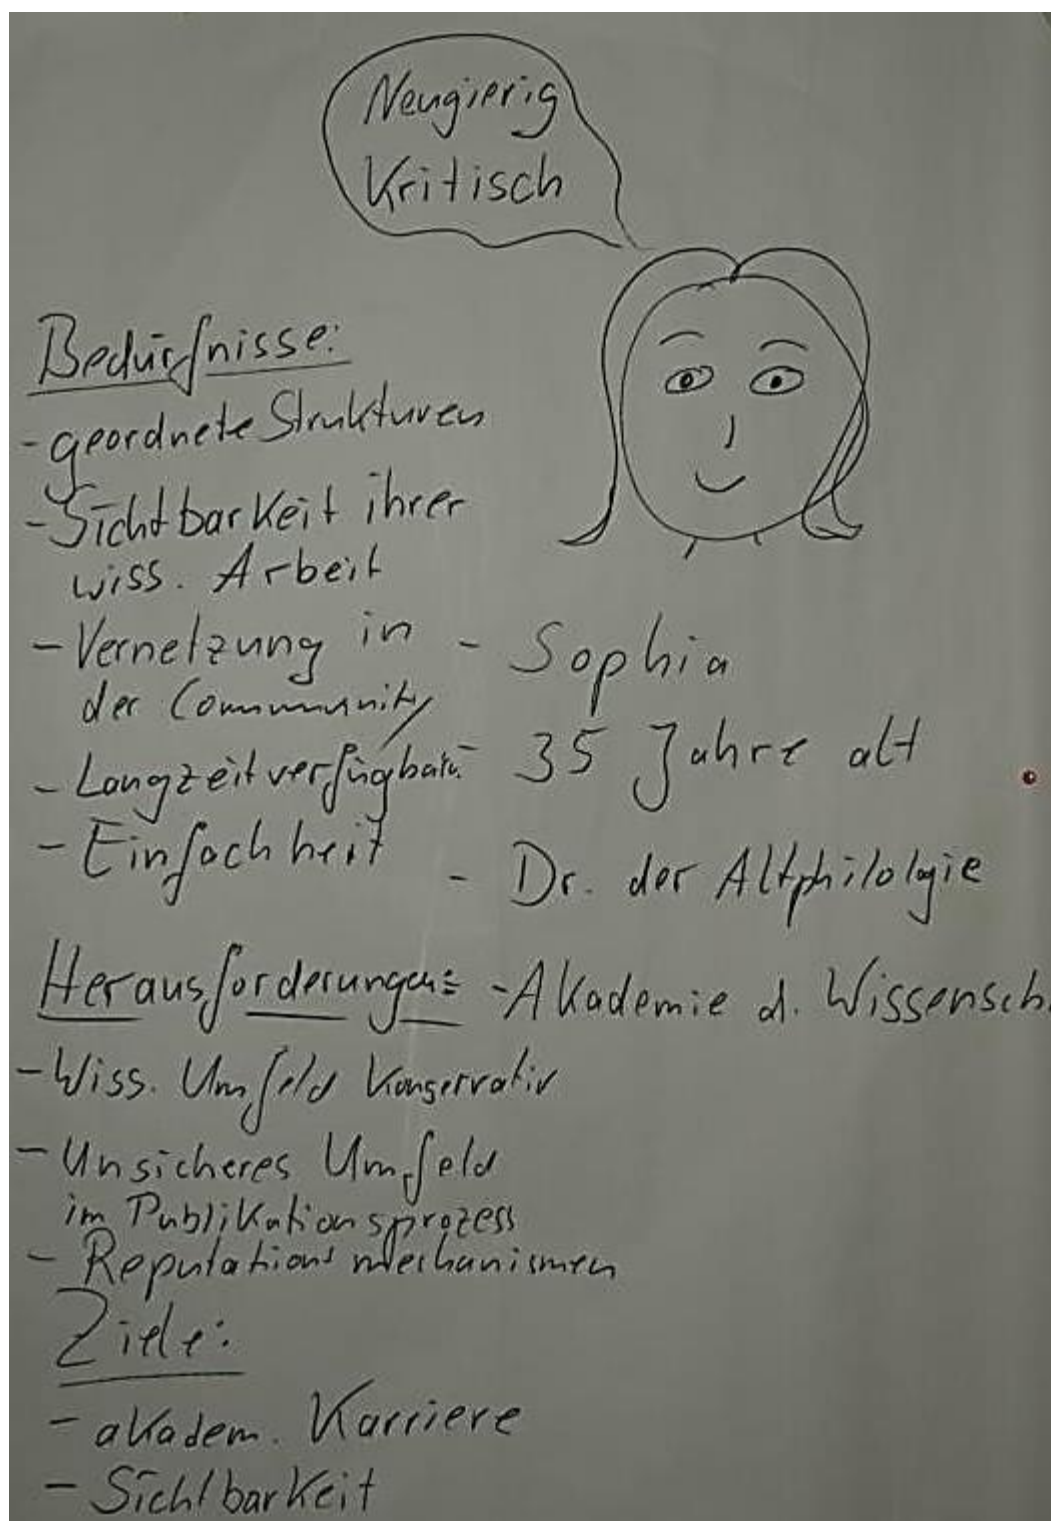 Neugierig
Kritisch
Bedürfnisse:
- geordnete Strukturen
- Sichtbarkeit ihrer
wiss. Arbeit
- Vernetzung in
der Community
- Langzeitverfügbark.
- Einfachheit
- Sophia
- 35 Jahre alt
- Dr. der Altphilologie
- Akademie d. Wissensch.
Herausforderungen:
- Wiss. Umfeld Konservativ
- Unsicheres Umfeld
im Publikationsprozess
- Reputationsmechanismen
Ziele:
- akadem. Karriere
- Sichtbarkeit